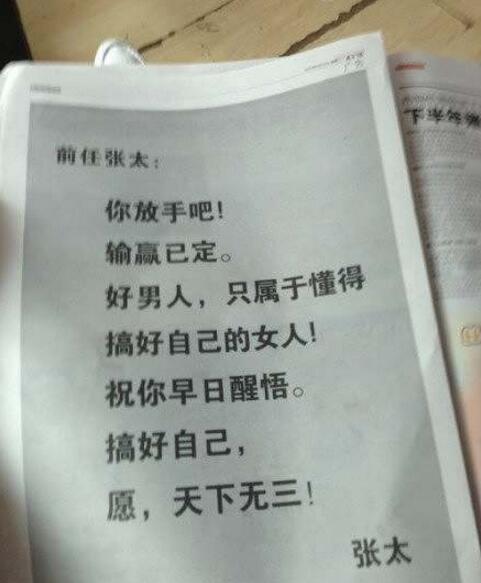 广告
前任张太：
你放手吧！
输赢已定。
好男人，只属于懂得
搞好自己的女人！
祝你早日醒悟。
搞好自己，
愿，天下无三！
张太
下半年